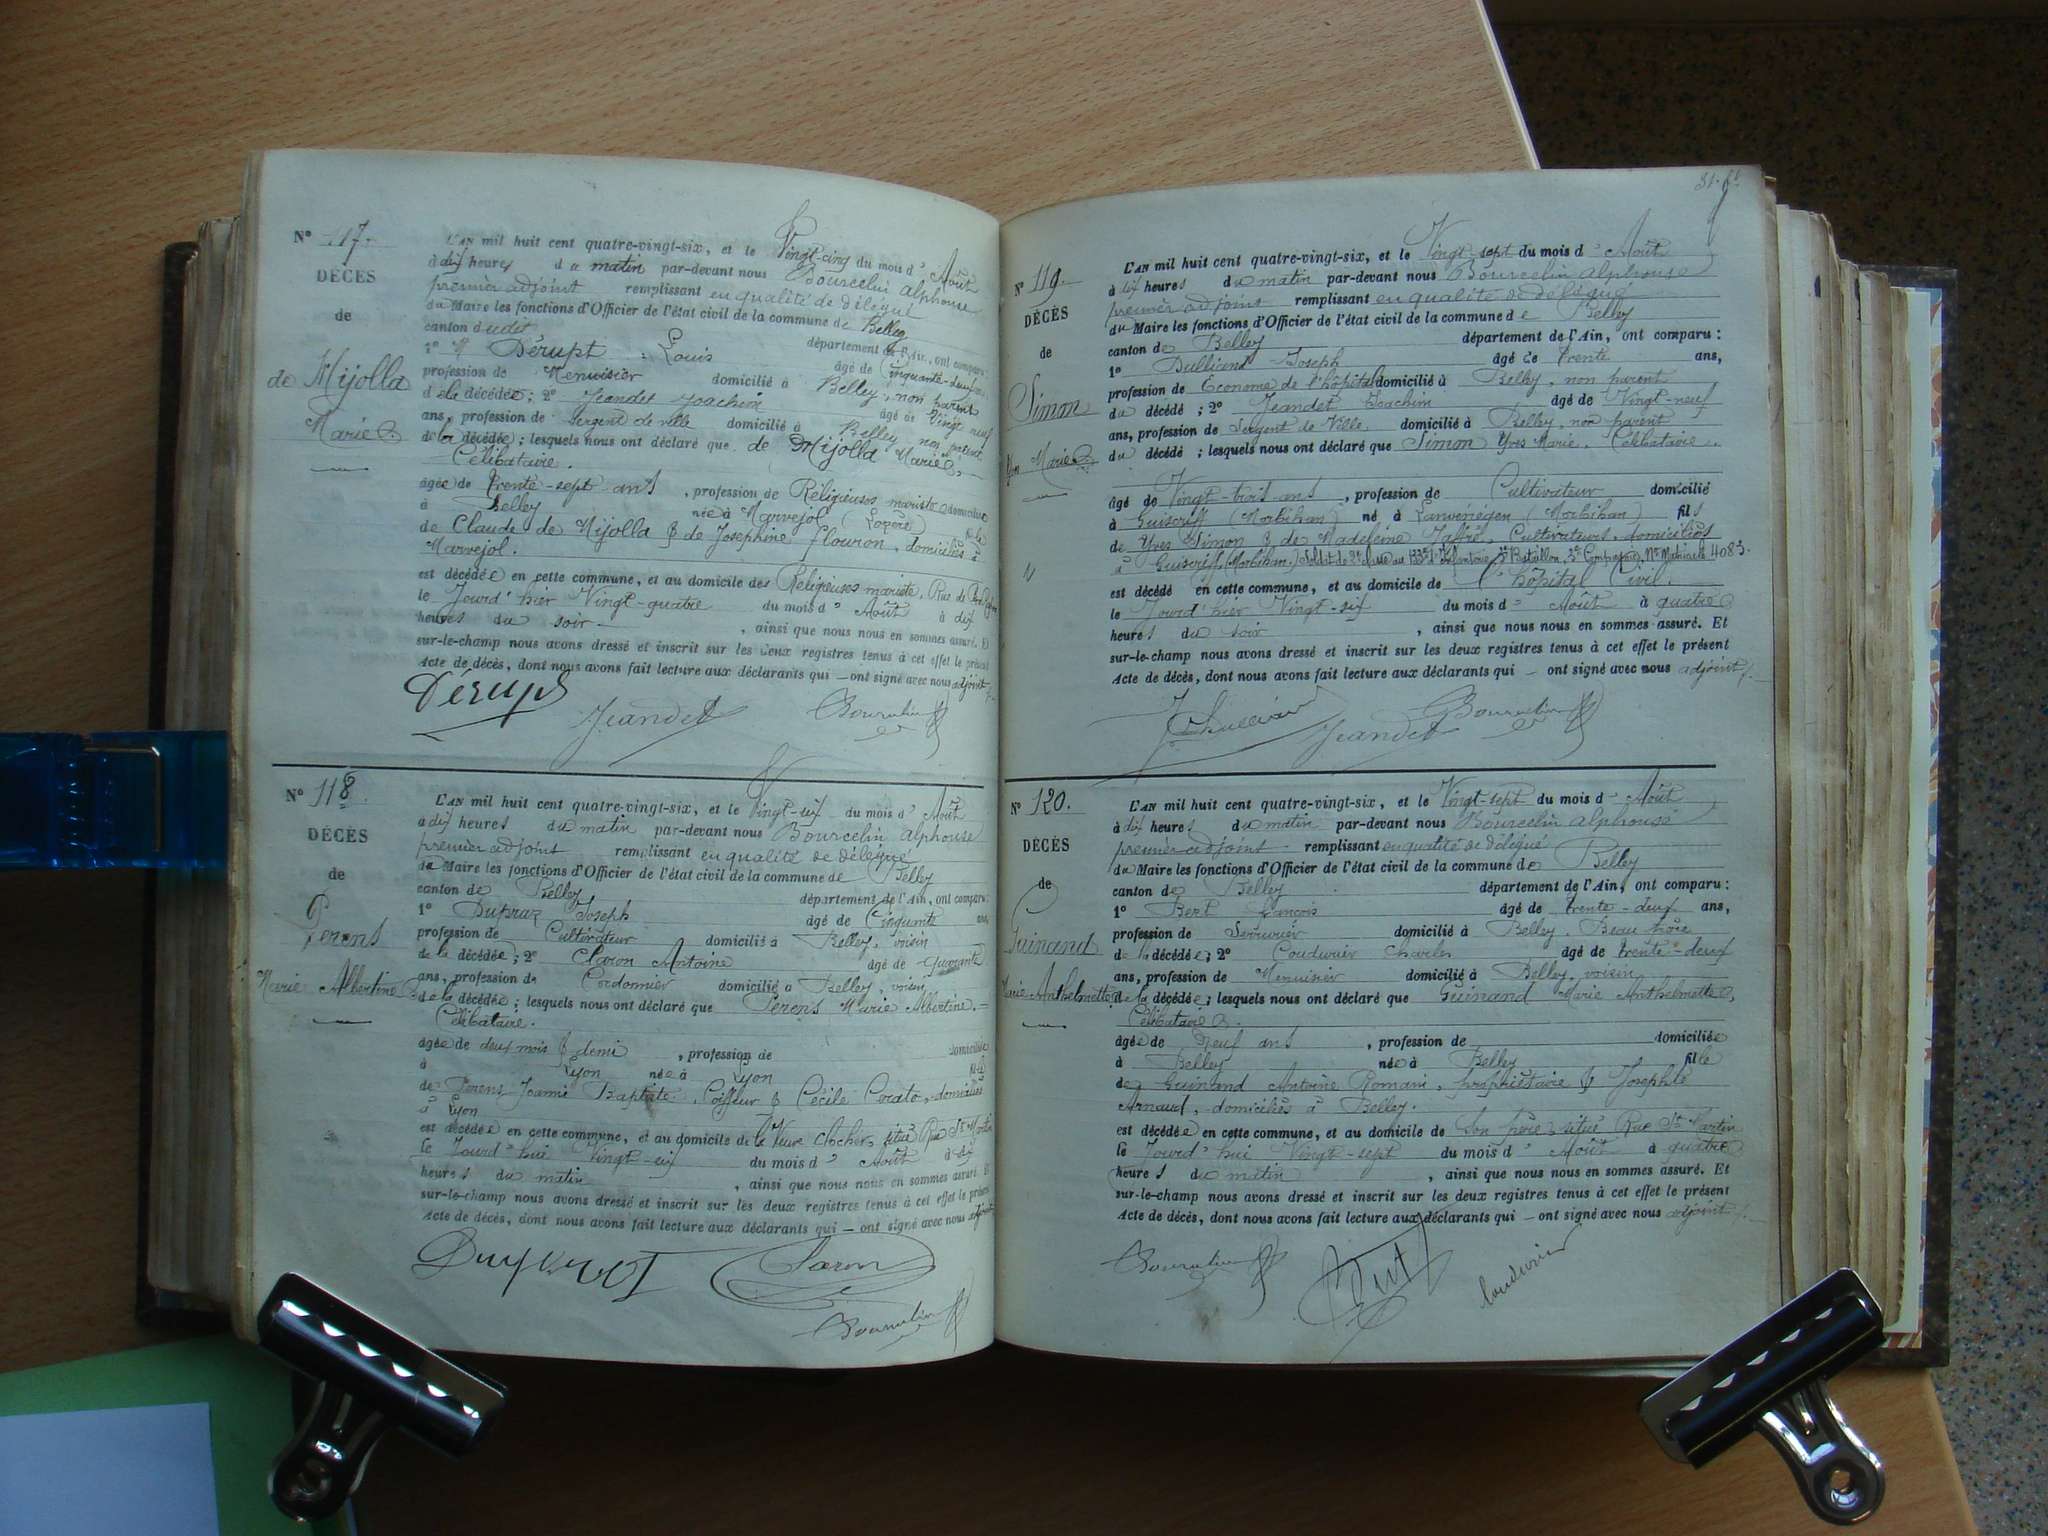 N° 117.
DÉCÈS
de
de Mijolla
Marie
L'AN mil huit cent quatre-vingt-six, et le Vingt-cinq du mois d' Août
à dix heures du matin par-devant nous Bourcelin Alphonse
premier adjoint remplissant en qualité de délégué
du Maire les fonctions d'Officier de l'état civil de la commune de Belley
canton dudit département de l'Ain, ont comparu:
1° Dérupt Louis âgé de Cinquante-deux ans,
profession de Menuisier domicilié à Belley, non parent
de la décédée; 2° Jeandet Joachim âgé de Vingt neuf
ans, profession de Sergent de ville domicilié à Belley, non parent
de la décédée; lesquels nous ont déclaré que de Mijolla Marie,
Célibataire.
âgée de trente-sept ans, profession de Religieuse mariste domiciliée
à Belley née à Marvejol (Lozère) fille
de Claude de Mijolla & de Josephine Flouron, domiciliés à
Marvejol.
est décédée en cette commune, et au domicile des Religieuses mariste, Rue de
le Jourd'hier Vingt-quatre du mois d' Août à dix
heures du soir, ainsi que nous nous en sommes assuré. Et
sur-le-champ nous avons dressé et inscrit sur les deux registres tenus à cet effet le présent
Acte de décès, dont nous avons fait lecture aux déclarants qui — ont signé avec nous adjoint
Dérupt
Jeandet
Bourcelin
N° 118.
DÉCÈS
de
Perens
Marie Albertine
L'AN mil huit cent quatre-vingt-six, et le Vingt-six du mois d' Août
à dix heures du matin par-devant nous Bourcelin Alphonse
premier adjoint remplissant en qualité de délégué
du Maire les fonctions d'Officier de l'état civil de la commune de Belley
canton de Belley département de l'Ain, ont comparu:
1° Dupraz Joseph âgé de Cinquante ans,
profession de Cultivateur domicilié à Belley, voisin
de la décédée; 2° Claron Antoine âgé de Quarante
ans, profession de Cordonnier domicilié à Belley, voisin
de la décédée; lesquels nous ont déclaré que Perens Marie Albertine.
Célibataire.
âgée de deux mois & demi, profession de domiciliée
à Lyon née à Lyon fille
de Perens Joanni Baptiste, Coiffeur & Cécile Cerato, domiciliés
à Lyon
est décédée en cette commune, et au domicile de la Veuve Clocher, situé Rue St Martin
le Jourd'hui Vingt-six du mois d' Août à six
heures du matin, ainsi que nous nous en sommes assuré. Et
sur-le-champ nous avons dressé et inscrit sur les deux registres tenus à cet effet le présent
Acte de décès, dont nous avons fait lecture aux déclarants qui — ont signé avec nous adjoint
Claron
Bourcelin
N° 119.
DÉCÈS
de
Simon
Yves Marie
L'AN mil huit cent quatre-vingt-six, et le Vingt-sept du mois d' Août
à dix heures du matin par-devant nous Bourcelin Alphonse
premier adjoint remplissant en qualité de délégué
du Maire les fonctions d'Officier de l'état civil de la commune de Belley
canton de Belley département de l'Ain, ont comparu:
1° Dulliand Joseph âgé de trente ans,
profession de Econome de l'hôpital domicilié à Belley, non parent
du décédé; 2° Jeandet Joachim âgé de Vingt-neuf
ans, profession de Sergent de Ville domicilié à Belley, non parent
du décédé; lesquels nous ont déclaré que Simon Yves Marie. Célibataire.
âgé de Vingt-trois ans, profession de Cultivateur domicilié
à Guiscriff (Morbihan) né à Lanvénégen (Morbihan) fils
de Yves Simon & de Madeleine Jaffré, Cultivateurs, domiciliés
à Guiscriff (Morbihan.) Soldat de 2e classe au 133e d'Infanterie 3e Bataillon, 3e Compagnie, N° Matricule 4083.
est décédé en cette commune, et au domicile de l'hôpital Civil.
le Jourd'hier Vingt-six du mois d' Août à quatre
heures du soir, ainsi que nous nous en sommes assuré. Et
sur-le-champ nous avons dressé et inscrit sur les deux registres tenus à cet effet le présent
Acte de décès, dont nous avons fait lecture aux déclarants qui — ont signé avec nous adjoint
Jeandet
Bourcelin
N° 120.
DÉCÈS
de
Guinand
Marie Anthelmette
L'AN mil huit cent quatre-vingt-six, et le Vingt-sept du mois d' Août
à dix heures du matin par-devant nous Bourcelin Alphonse
premier adjoint remplissant en qualité de délégué
du Maire les fonctions d'Officier de l'état civil de la commune de Belley
canton de Belley département de l'Ain, ont comparu:
1° Bert François âgé de trente-deux ans,
profession de Serrurier domicilié à Belley, Beau frère
de la décédée; 2° Coudurier Charles âgé de trente-deux
ans, profession de Menuisier domicilié à Belley, voisin
de la décédée; lesquels nous ont déclaré que Guinand Marie Anthelmette,
Célibataire.
âgée de neuf ans, profession de domiciliée
à Belley née à Belley fille
de Guinand Antoine Romain, propriétaire & Josephte
Arnaud, domiciliés à Belley.
est décédée en cette commune, et au domicile de son père, situé Rue St Martin
le Jourd'hui Vingt-sept du mois d' Août à quatre
heures du matin, ainsi que nous nous en sommes assuré. Et
sur-le-champ nous avons dressé et inscrit sur les deux registres tenus à cet effet le présent
Acte de décès, dont nous avons fait lecture aux déclarants qui — ont signé avec nous adjoint
Bourcelin
Bert
Coudurier